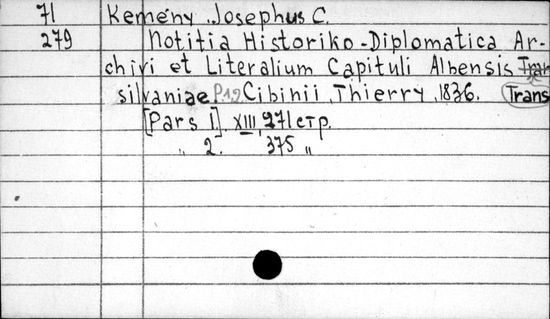 71 Kemény Josephus C.
279 Notitia Historiko-Diplomatica Ar-
chivi et Literalium Capituli Albensis Tran
silvaniae. P12 Cibinii, Thierry, 1836. Trans
[Pars I]. XIII, 271 стр.
„ 2. 375 „